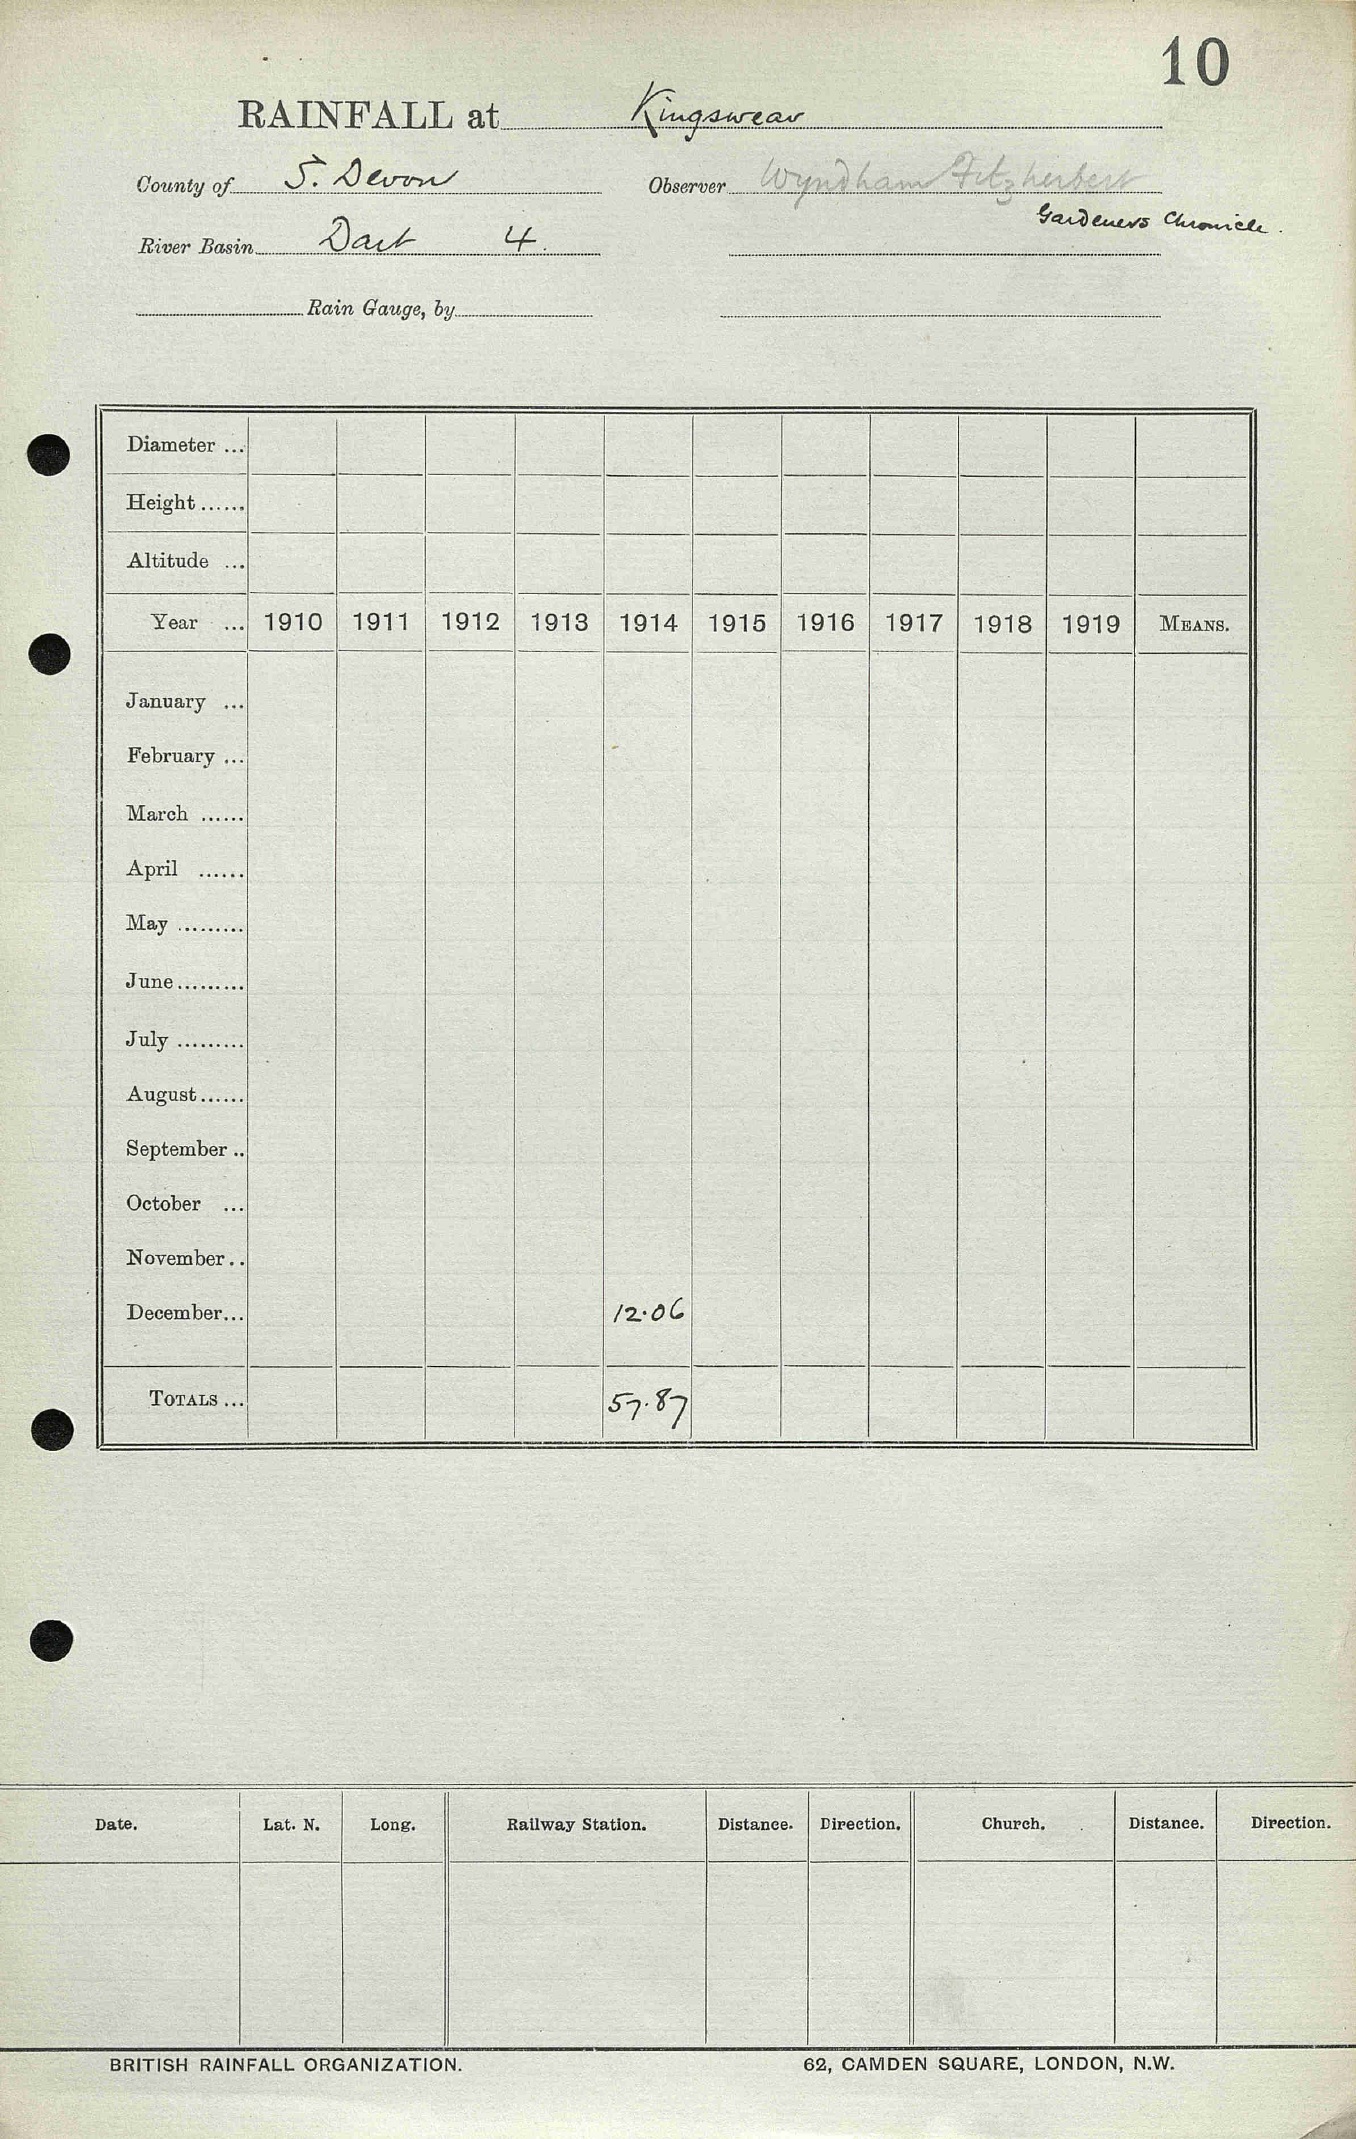 10
RAINFALL at Kingswear
County of S. Devon Observer Wyndham Fitzherbert
Gardeners Chronicle.
River Basin Dart 4.
Rain Gauge, by
Diameter ...
Height ......
Altitude ...
Year ... 1910 1911 1912 1913 1914 1915 1916 1917 1918 1919 MEANS.
January ...
February ...
March ......
April ......
May .........
June .........
July .........
August ......
September ..
October ...
November ..
December ... 12.06
TOTALS ... 57.87
Date. Lat. N. Long. Railway Station. Distance. Direction. Church. Distance. Direction.
BRITISH RAINFALL ORGANIZATION. 62, CAMDEN SQUARE, LONDON, N.W.